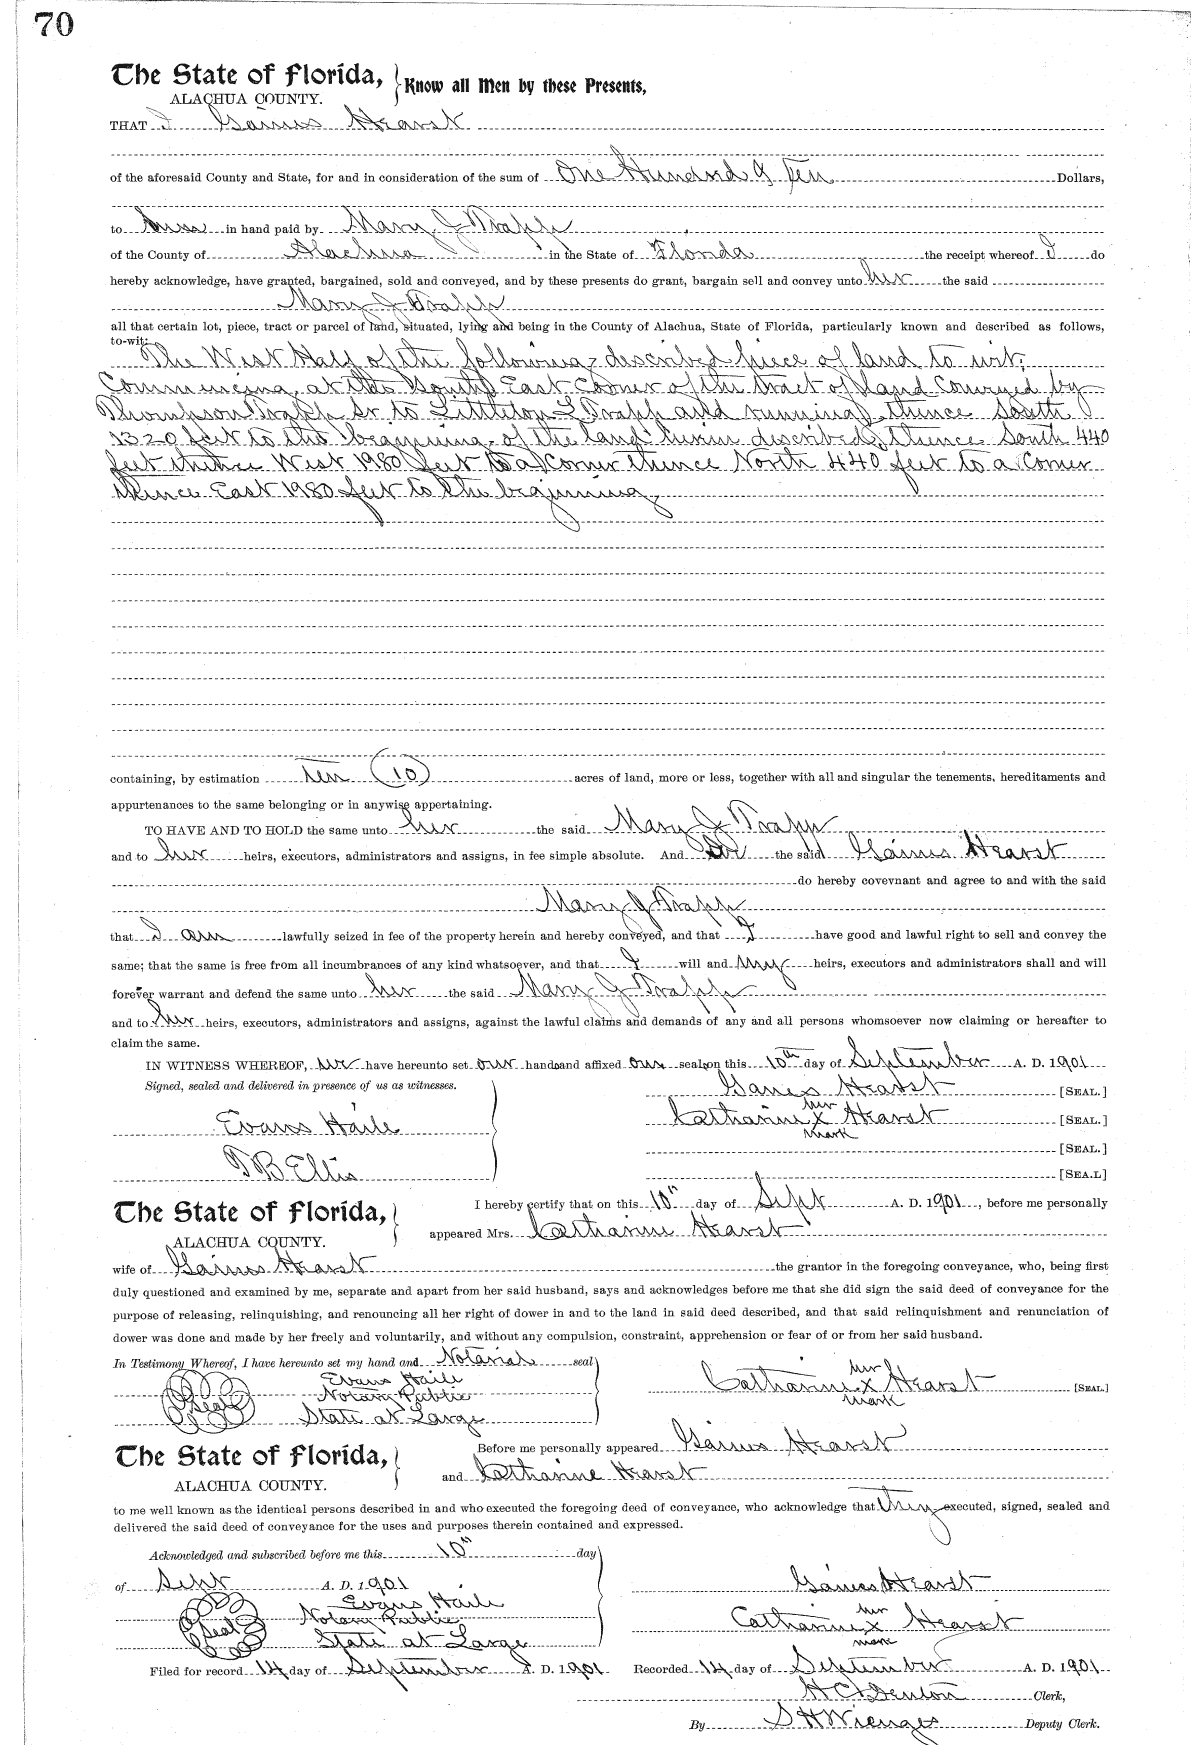 70
The State of Florida, Know all Men by these Presents,
ALACHUA COUNTY.
THAT I Gainus Hearst
of the aforesaid County and State, for and in consideration of the sum of One Hundred & Ten Dollars,
to in hand paid by Mary J Trapp
of the County of Alachua in the State of Florida the receipt whereof I do
hereby acknowledge, have granted, bargained, sold and conveyed, and by these presents do grant, bargain sell and convey unto her the said
Mary J Trapp
all that certain lot, piece, tract or parcel of land, situated, lying and being in the County of Alachua, State of Florida, particularly known and described as follows,
to-wit:
The West Half of the following described piece of land to wit;
Commencing at the South East Corner of the tract of land Conveyed by
Thompson Trapp Sr to Littleton L Trapp and running thence South
1320 feet to the beginning of the land herein described, thence South 440
feet thence West 1980 feet to a Corner thence North 440 feet to a Corner
thence East 1980 feet to the beginning
containing, by estimation Ten (10) acres of land, more or less, together with all and singular the tenements, hereditaments and
appurtenances to the same belonging or in anywise appertaining.
TO HAVE AND TO HOLD the same unto her the said Mary J Trapp
and to her heirs, executors, administrators and assigns, in fee simple absolute. And the said Gainus Hearst
do hereby covevnant and agree to and with the said
Mary J Trapp
that I am lawfully seized in fee of the property herein and hereby conveyed, and that I have good and lawful right to sell and convey the
same; that the same is free from all incumbrances of any kind whatsoever, and that I will and my heirs, executors and administrators shall and will
forever warrant and defend the same unto her the said Mary J Trapp
and to her heirs, executors, administrators and assigns, against the lawful claims and demands of any and all persons whomsoever now claiming or hereafter to
claim the same.
IN WITNESS WHEREOF, we have hereunto set our hands and affixed our seals on this 10th day of September A. D. 1901
Signed, sealed and delivered in presence of us as witnesses. Gaines Hearst [SEAL.]
her
Evans Haile Catharine X Hearst [SEAL.]
mark
[SEAL.]
T B Ellis [SEAL]
The State of Florida, I hereby certify that on this 10th day of Sept A. D. 1901, before me personally
ALACHUA COUNTY. appeared Mrs. Catharine Hearst
wife of Gainus Hearst the grantor in the foregoing conveyance, who, being first
duly questioned and examined by me, separate and apart from her said husband, says and acknowledges before me that she did sign the said deed of conveyance for the
purpose of releasing, relinquishing, and renouncing all her right of dower in and to the land in said deed described, and that said relinquishment and renunciation of
dower was done and made by her freely and voluntarily, and without any compulsion, constraint, apprehension or fear of or from her said husband.
In Testimony Whereof, I have hereunto set my hand and Notarial seal
her
Evans Haile Catharine X Hearst [SEAL.]
Seal Notary Public mark
State at Large
The State of Florida, Before me personally appeared Gainus Hearst
ALACHUA COUNTY. and Catharine Hearst
to me well known as the identical persons described in and who executed the foregoing deed of conveyance, who acknowledge that they executed, signed, sealed and
delivered the said deed of conveyance for the uses and purposes therein contained and expressed.
Acknowledged and subscribed before me this 10th day
of Sept A. D. 1901 Gaines Hearst
Evans Haile her
Seal Notary Public Catharine X Hearst
State at Large mark
Filed for record 14 day of September A. D. 1901 Recorded 14 day of September A. D. 1901
H C Denton Clerk,
By S H Wienges Deputy Clerk.